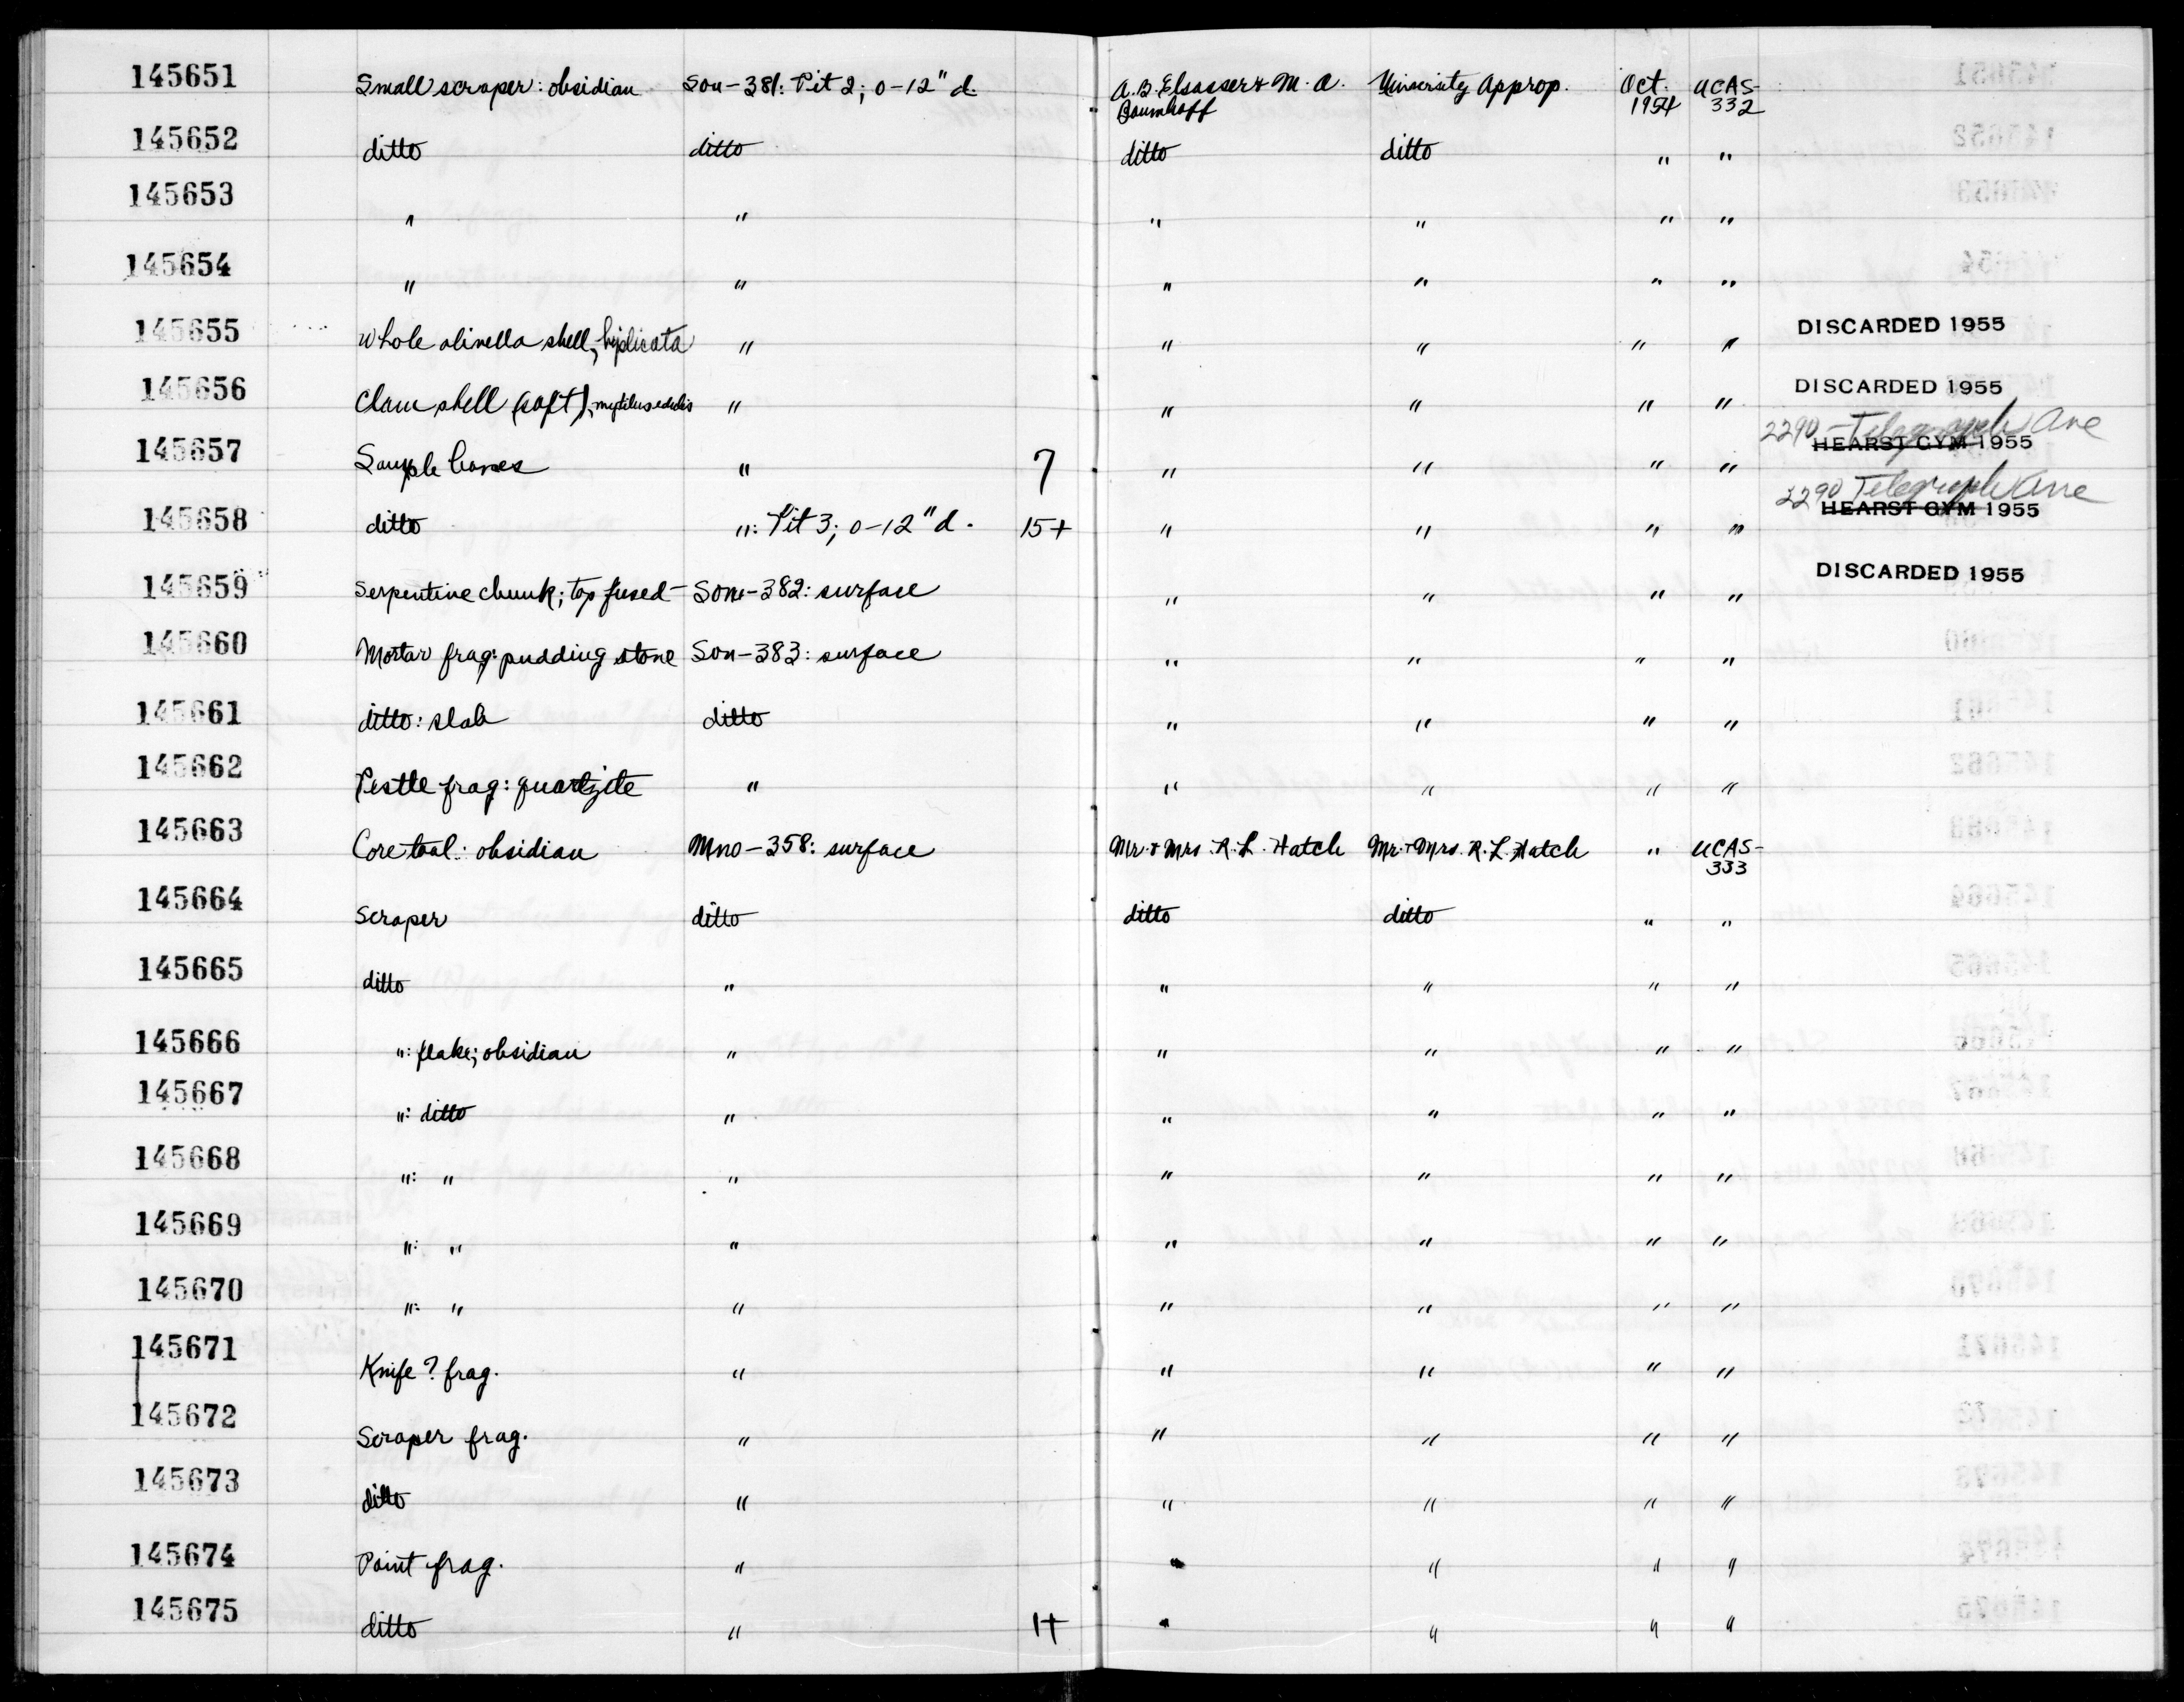 145651 Small scraper: obsidian Son-381: Pit 2; 0-12" d. A.B. Elsasser & M.A. Baumhoff University Approp. Oct. 1954 UCAS-332
145652 ditto ditto ditto ditto " "
145653 " " " " " "
145654 " " " " " "
145655 Whole olivella shell, biplicata " " " " " DISCARDED 1955
145656 Clam shell (soft), mytilus edulis " " " " " DISCARDED 1955
145657 Sample bones " 7 " " " " 2290 Telegraph Ave HEARST GYM 1955
145658 ditto ": Pit 3; 0-12" d. 15+ " " " " 2290 Telegraph Ave HEARST GYM 1955
145659 Serpentine chunk; top fused Son-382: surface " " " " DISCARDED 1955
145660 Mortar frag: pudding stone Son-383: surface " " " "
145661 ditto: slab ditto " " " "
145662 Pestle frag: quartzite " " " " "
145663 Core tool: obsidian Mno-358: surface Mr. & Mrs. R. L. Hatch Mr. & Mrs. R. L. Hatch " UCAS-333
145664 Scraper ditto ditto ditto " "
145665 ditto " " " " "
145666 ": flake; obsidian " " " " "
145667 ": ditto " " " " "
145668 ": " " " " " "
145669 ": " " " " " "
145670 ": " " " " " "
145671 Knife? frag. " " " " "
145672 Scraper frag. " " " " "
145673 ditto " " " " "
145674 Point frag. " " " " "
145675 ditto " 1+ " " " "